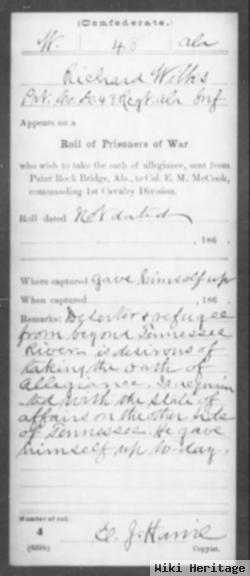 (Confederate.)
W. 48 Ala
Richard Wilks
Pvt. Co. 48 Regt. Ala Inf
Appears on a
Roll of Prisoners of War
who wish to take the oath of allegiance, sent from
Paint Rock Bridge, Ala., to Col. E. M. McCook,
commanding 1st Cavalry Division.
Roll dated Not dated
, 186 .
Where captured Gave himself up
When captured , 186 .
Remarks: Deserter & refugee
from beyond Tennessee
River - is desirous of
taking the oath of
Allegiance. Is acquain
ted with the state of
affairs on the other side
of Tennessee. He gave
himself up to-day.
Number of roll:
4
E. J. 
Copyist.
Wiki Heritage